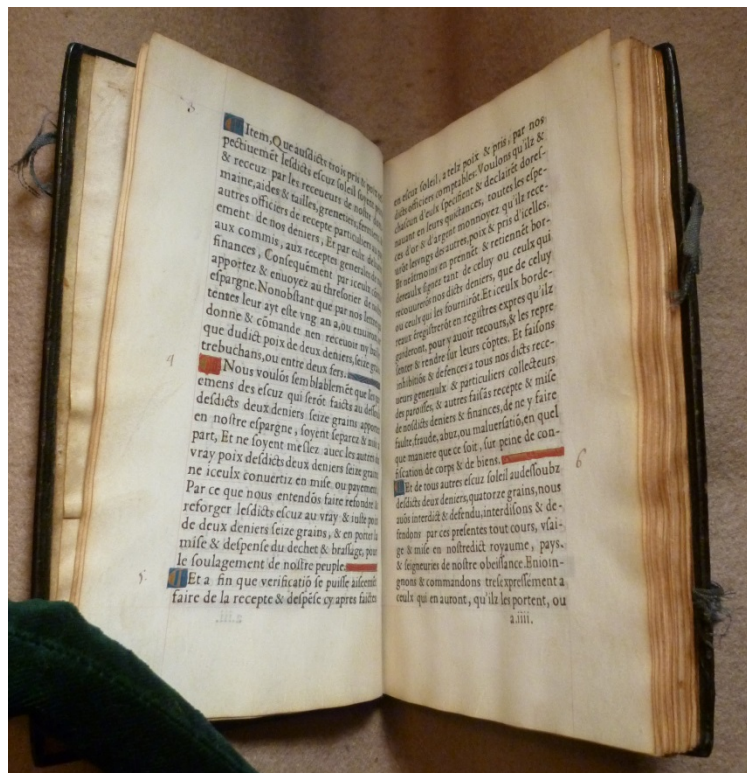 3
Item, Que ausdicts trois pris & poix
pectiuemēt lesdicts escuz soleil soyent
& receuz par les receueurs de nostre
maine, aides & tailles, grenetiers, fermiers
autres officiers de recepte particuliers
ement de nos deniers, Et par eulx
aux commis, aux receptes generales de
finances, Consequēment par iceulx
apportez & enuoyez au thresorier de
espargne. Nonobstant que par nos lettres
tentes leur ayt este vng an a, ou enuiron,
donne & cōmande nen receuoir
que dudict poix de deux deniers, seize grains
trebuchans, ou entre deux fers.
4
Nous voulōs semblablemēt que les
emens des escuz qui serōt faicts au dessoubz
desdicts deux deniers seize grains apportez
en nostre espargne, soyent separez & mis a
part, Et ne soyent meslez auec les autres du
vray poix desdicts deux deniers seize grains
ne iceulx conuertiz en mise ou payement,
Par ce que nous entendōs faire refondre &
reforger lesdicts escuz au vray & iuste poix
de deux deniers seize grains, & en porter la
mise & despense du dechet & brassage, pour
le soulagement de nostre peuple.
5.
Et a fin que verificatiō se puisse aiseement
faire de la recepte & despēse cy apres faictes
en escuz soleil, a telz poix & pris, par nos
dicts officiers comptables. Voulons qu'ilz &
chascun d'eulx specifient & declairēt dores-
nauant en leurs quictances, toutes les espe-
ces d'or & d'argent monnoyez qu'ilz rece-
urōt les vngs des autres, poix & pris d'icelles.
Et neātmoins en prennēt & retiennēt bor-
dereaulx signez tant de celuy ou ceulx qui
recouurerōt nos dicts deniers, que de celuy
ou ceulx qui les fournirōt. Et iceulx borde-
reaux ēregistrerōt en registres expres qu'ilz
garderont, pour y auoir recours, & les repre
senter & rendre sur leurs cōptes. Et faisons
inhibitiōs & defences a tous nos dicts rece-
ueurs generaulx & particuliers collecteurs
des paroisses, & autres faisās recepte & mise
de nosdicts deniers & finances, de ne y faire
faulte, fraude, abuz, ou maluersatiō, en quel
que maniere que ce soit, sur peine de con-
fiscation de corps & de biens.
6
Et de tous autres escuz soleil audessoubz
desdicts deux deniers, quatorze grains, nous
auōs interdict & defendu, interdisons & de-
fendons par ces presentes tout cours, vsai-
ge & mise en nostredict royaume, pays,
& seigneuries de nostre obeissance. Enioin-
gnons & commandons tresexpressement a
ceulx qui en auront, qu'ilz les portent, ou
a.iiii.